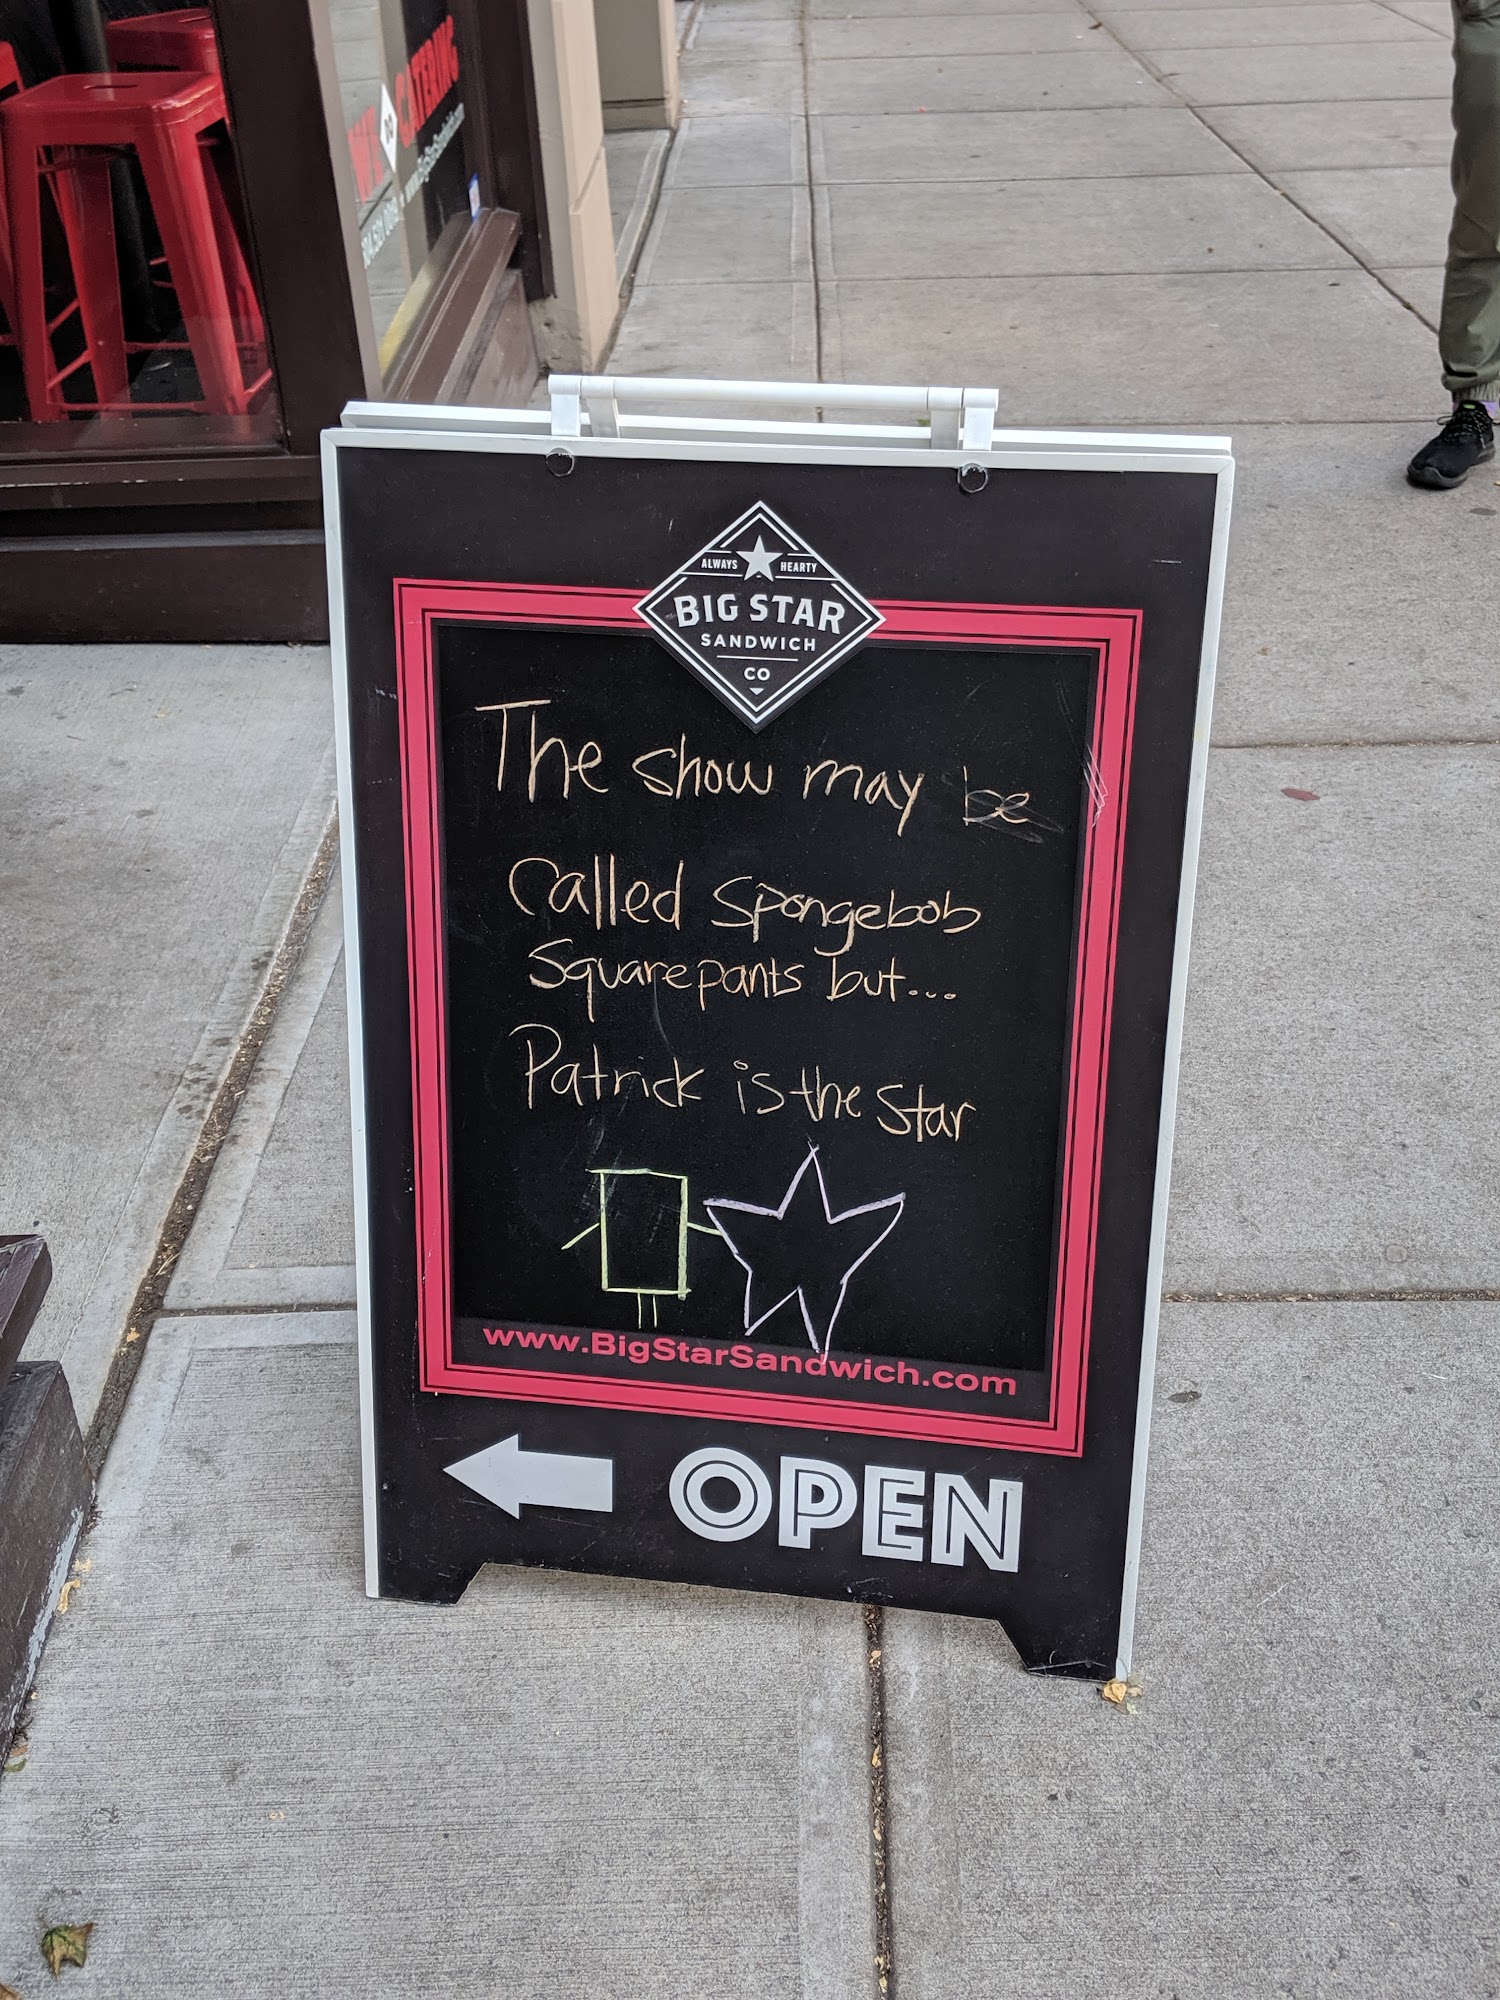 WE DO CATERING
www.BigStarSandwich.com
ALWAYS HEARTY
BIG STAR
SANDWICH
CO
The show may be
Called Spongebob
Squarepants but...
Patrick is the Star
www.BigStarSandwich.com
OPEN